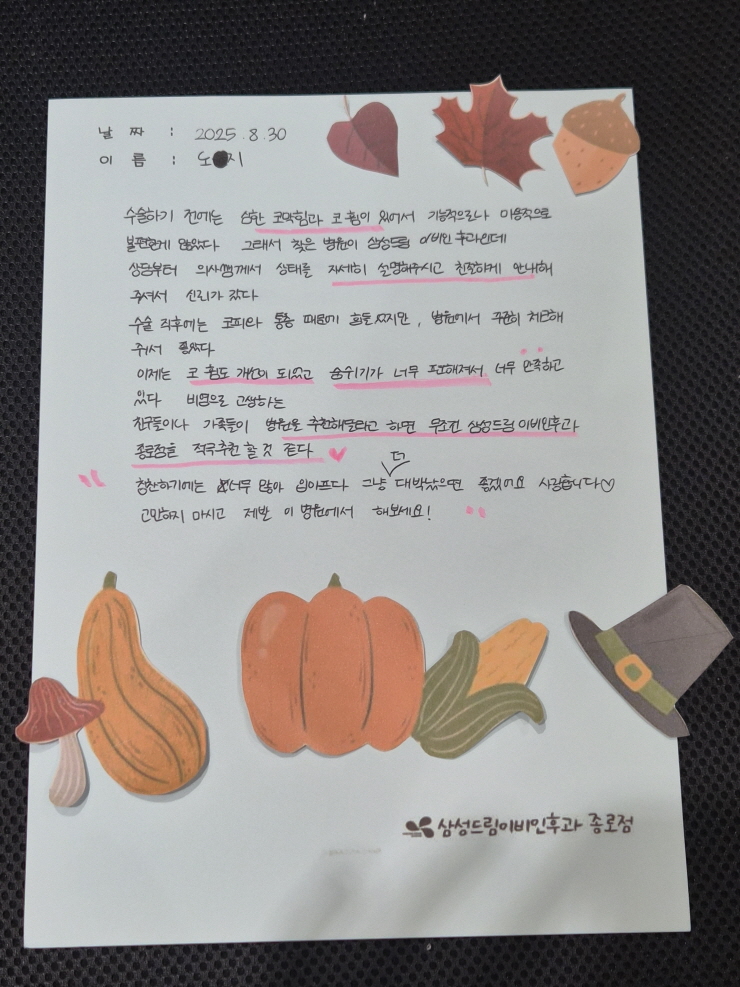 날 짜 : 2025.8.30
이 름 : 노 지
수술하기 전에는 심한 코막힘과 코 휨이 있어서 기능적으로나 미용적으로
불편한게 많았다 그래서 찾은 병원이 삼성드림 이비인후과인데
상담부터 의사쌤께서 상태를 자세히 설명해주시고 친절하게 안내해
주셔서 신뢰가 갔다
수술 직후에는 코피와 통증 때문에 힘들었지만, 병원에서 꾸준히 체크해
주셔서 좋았다
이제는 코 휨도 개선이 되었고 숨쉬기가 너무 편해져서 너무 만족하고
있다 비염으로 고생하는
친구들이나 가족들이 병원을 추천해달라고 하면 무조건 삼성드림이비인후과
종로점을 적극추천 할 것 같다
더
" 칭찬하기에는 너무 많아 입아프다 그냥 대박났으면 좋겠어요 사랑합니다♡
고민하지 마시고 제발 이 병원에서 해보세요! "
삼성드림이비인후과 종로점